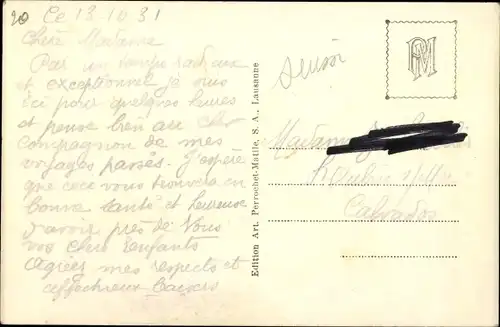 20 Ce 13-10 31
Chère Madame
Par un temps radieux
et exceptionnel je suis
ici pour quelques heures
et pense bien au cher
compagnon de mes
voyages passés. J'espère
que ceci vous trouvera en
bonne santé et heureuse
d'avoir près de vous
vos chers enfants
Agréez mes respects et
affectueux baisers
Edition Art. Perrochet-Matile, S. A., Lausanne
PM
Suisse
Madame
Calvados